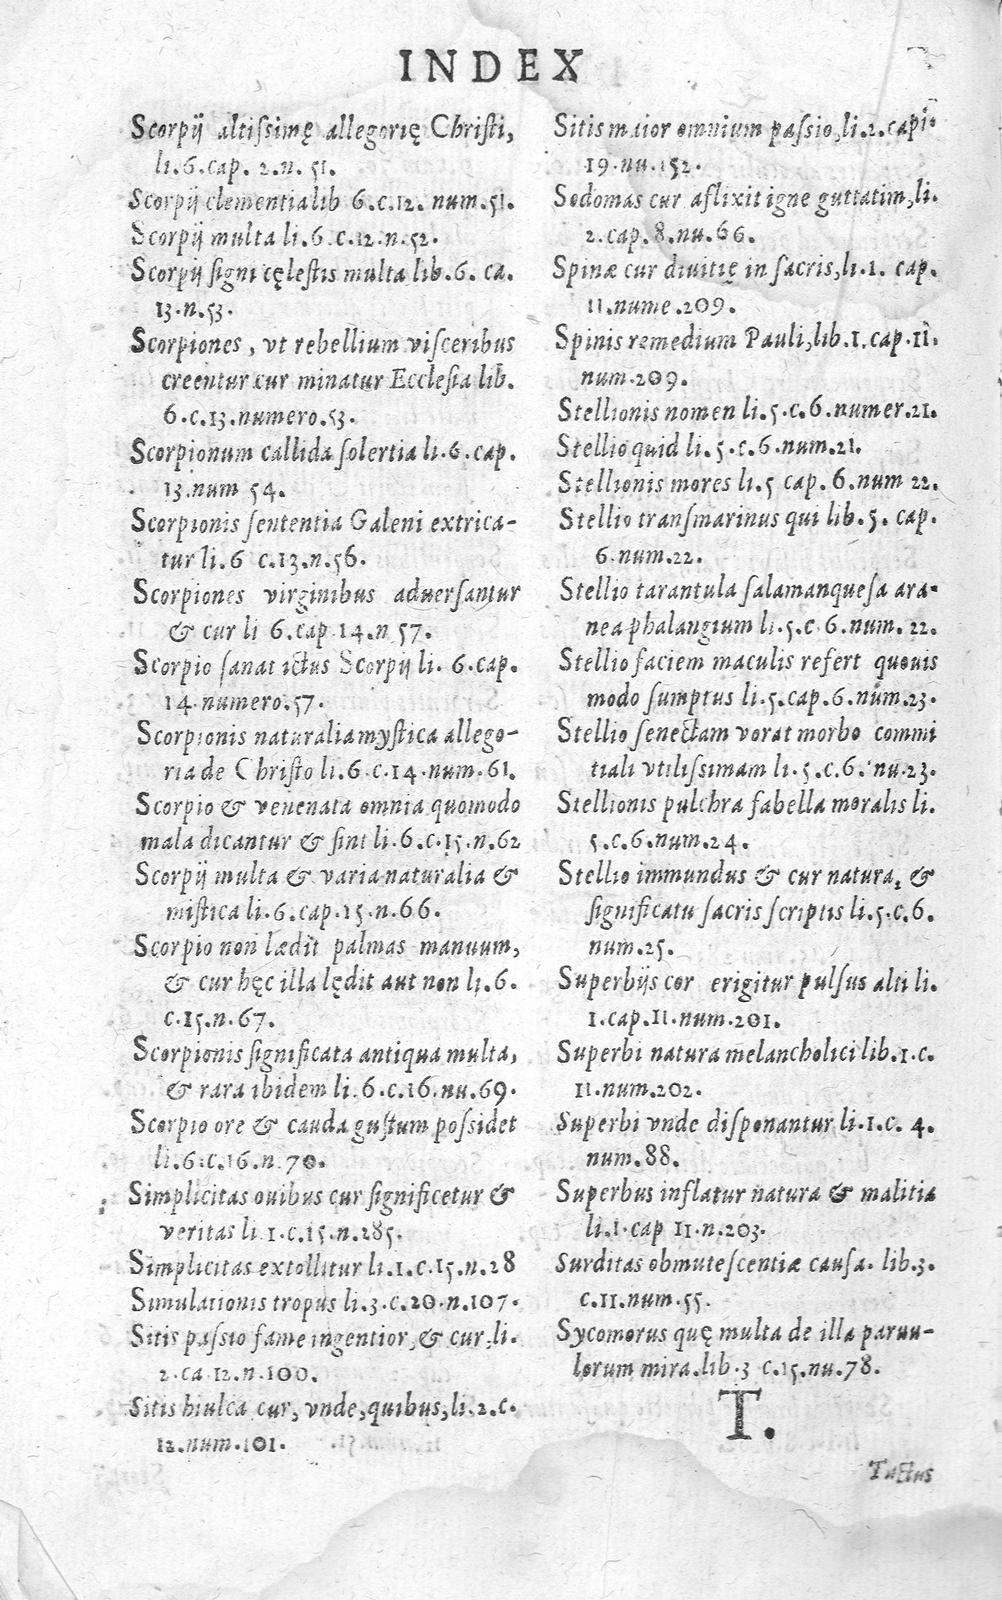 INDEX
Scorpij altissimę allegorię Christi,
li.6.cap. 2.n. 51.
Scorpij clementia lib 6.c.12. num.51.
Scorpij multa li.6.c.12.n.52.
Scorpij signi cęlestis multa lib.6. ca.
13.n.53.
Scorpiones, vt rebellium visceribus
creentur cur minatur Ecclesia lib.
6.c.13.numero.53.
Scorpionum callida solertia li.6.cap.
13.num 54.
Scorpionis sententia Galeni extrica-
tur li.6 c.13.n.56.
Scorpiones virginibus aduersantur
& cur li 6.cap.14.n 57.
Scorpio sanat ictus Scorpij li. 6.cap.
14.numero.57.
Scorpionis naturalia mystica allego-
ria de Christo li.6.c.14.num.61.
Scorpio & venenata omnia quomodo
mala dicantur & sint li.6.c.15.n.62
Scorpij multa & varia naturalia &
mistica li.6.cap.15.n.66.
Scorpio non lædit palmas manuum,
& cur hęc illa lędit aut non li.6.
c.15.n.67.
Scorpionis significata antiqua multa,
& rara ibidem li.6.c.16.nu.69.
Scorpio ore & cauda gustum possidet
li.6.c.16.n.70.
Simplicitas ouibus cur significetur &
veritas li.1.c.15.n.285.
Simplicitas extollitur li.1.c.15.n.28
Simulationis tropus li.3.c.20.n.107.
Sitis passio fame ingentior, & cur,li.
2.ca.12.n.100.
Sitis hiulca cur, vnde, quibus,li.2.c.
12.num.101.
Sitis maior omnium passio,li.2.capi.
19.nu.152.
Sodomas cur aflixit igne guttatim,li.
2.cap.8.nu.66.
Spinæ cur diuitię in sacris,li.1. cap.
11.nume.209.
Spinis remedium Pauli,lib.1.cap.11.
num.209.
Stellionis nomen li.5.c.6.numer.21.
Stellio quid li.5.c.6.num.21.
Stellionis mores li.5 cap.6.num 22.
Stellio transmarinus qui lib.5. cap.
6.num.22.
Stellio tarantula salamanquesa ara-
nea phalangium li.5.c 6.num. 22.
Stellio faciem maculis refert quouis
modo sumptus li.5.cap.6.num.23.
Stellio senectam vorat morbo commi
tiali vtilissimam li.5.c.6. nu.23.
Stellionis pulchra fabella moralis li.
5.c.6.num.24.
Stellio immundus & cur natura, &
significatu sacris scriptis li.5.c.6.
num.25.
Superbijs cor erigitur pulsus alti li.
1.cap.11.num.201.
Superbi natura melancholici lib.1.c.
11.num.202.
Superbi vnde disponantur li.1.c. 4.
num.88.
Superbus inflatur natura & malitia
li.1.cap 11.n.203.
Surditas obmutescentiæ causa. lib.3.
c.11.num.55.
Sycomorus quę multa de illa paruu-
lorum mira.lib.3 c.15.nu.78.
T.
Tactus